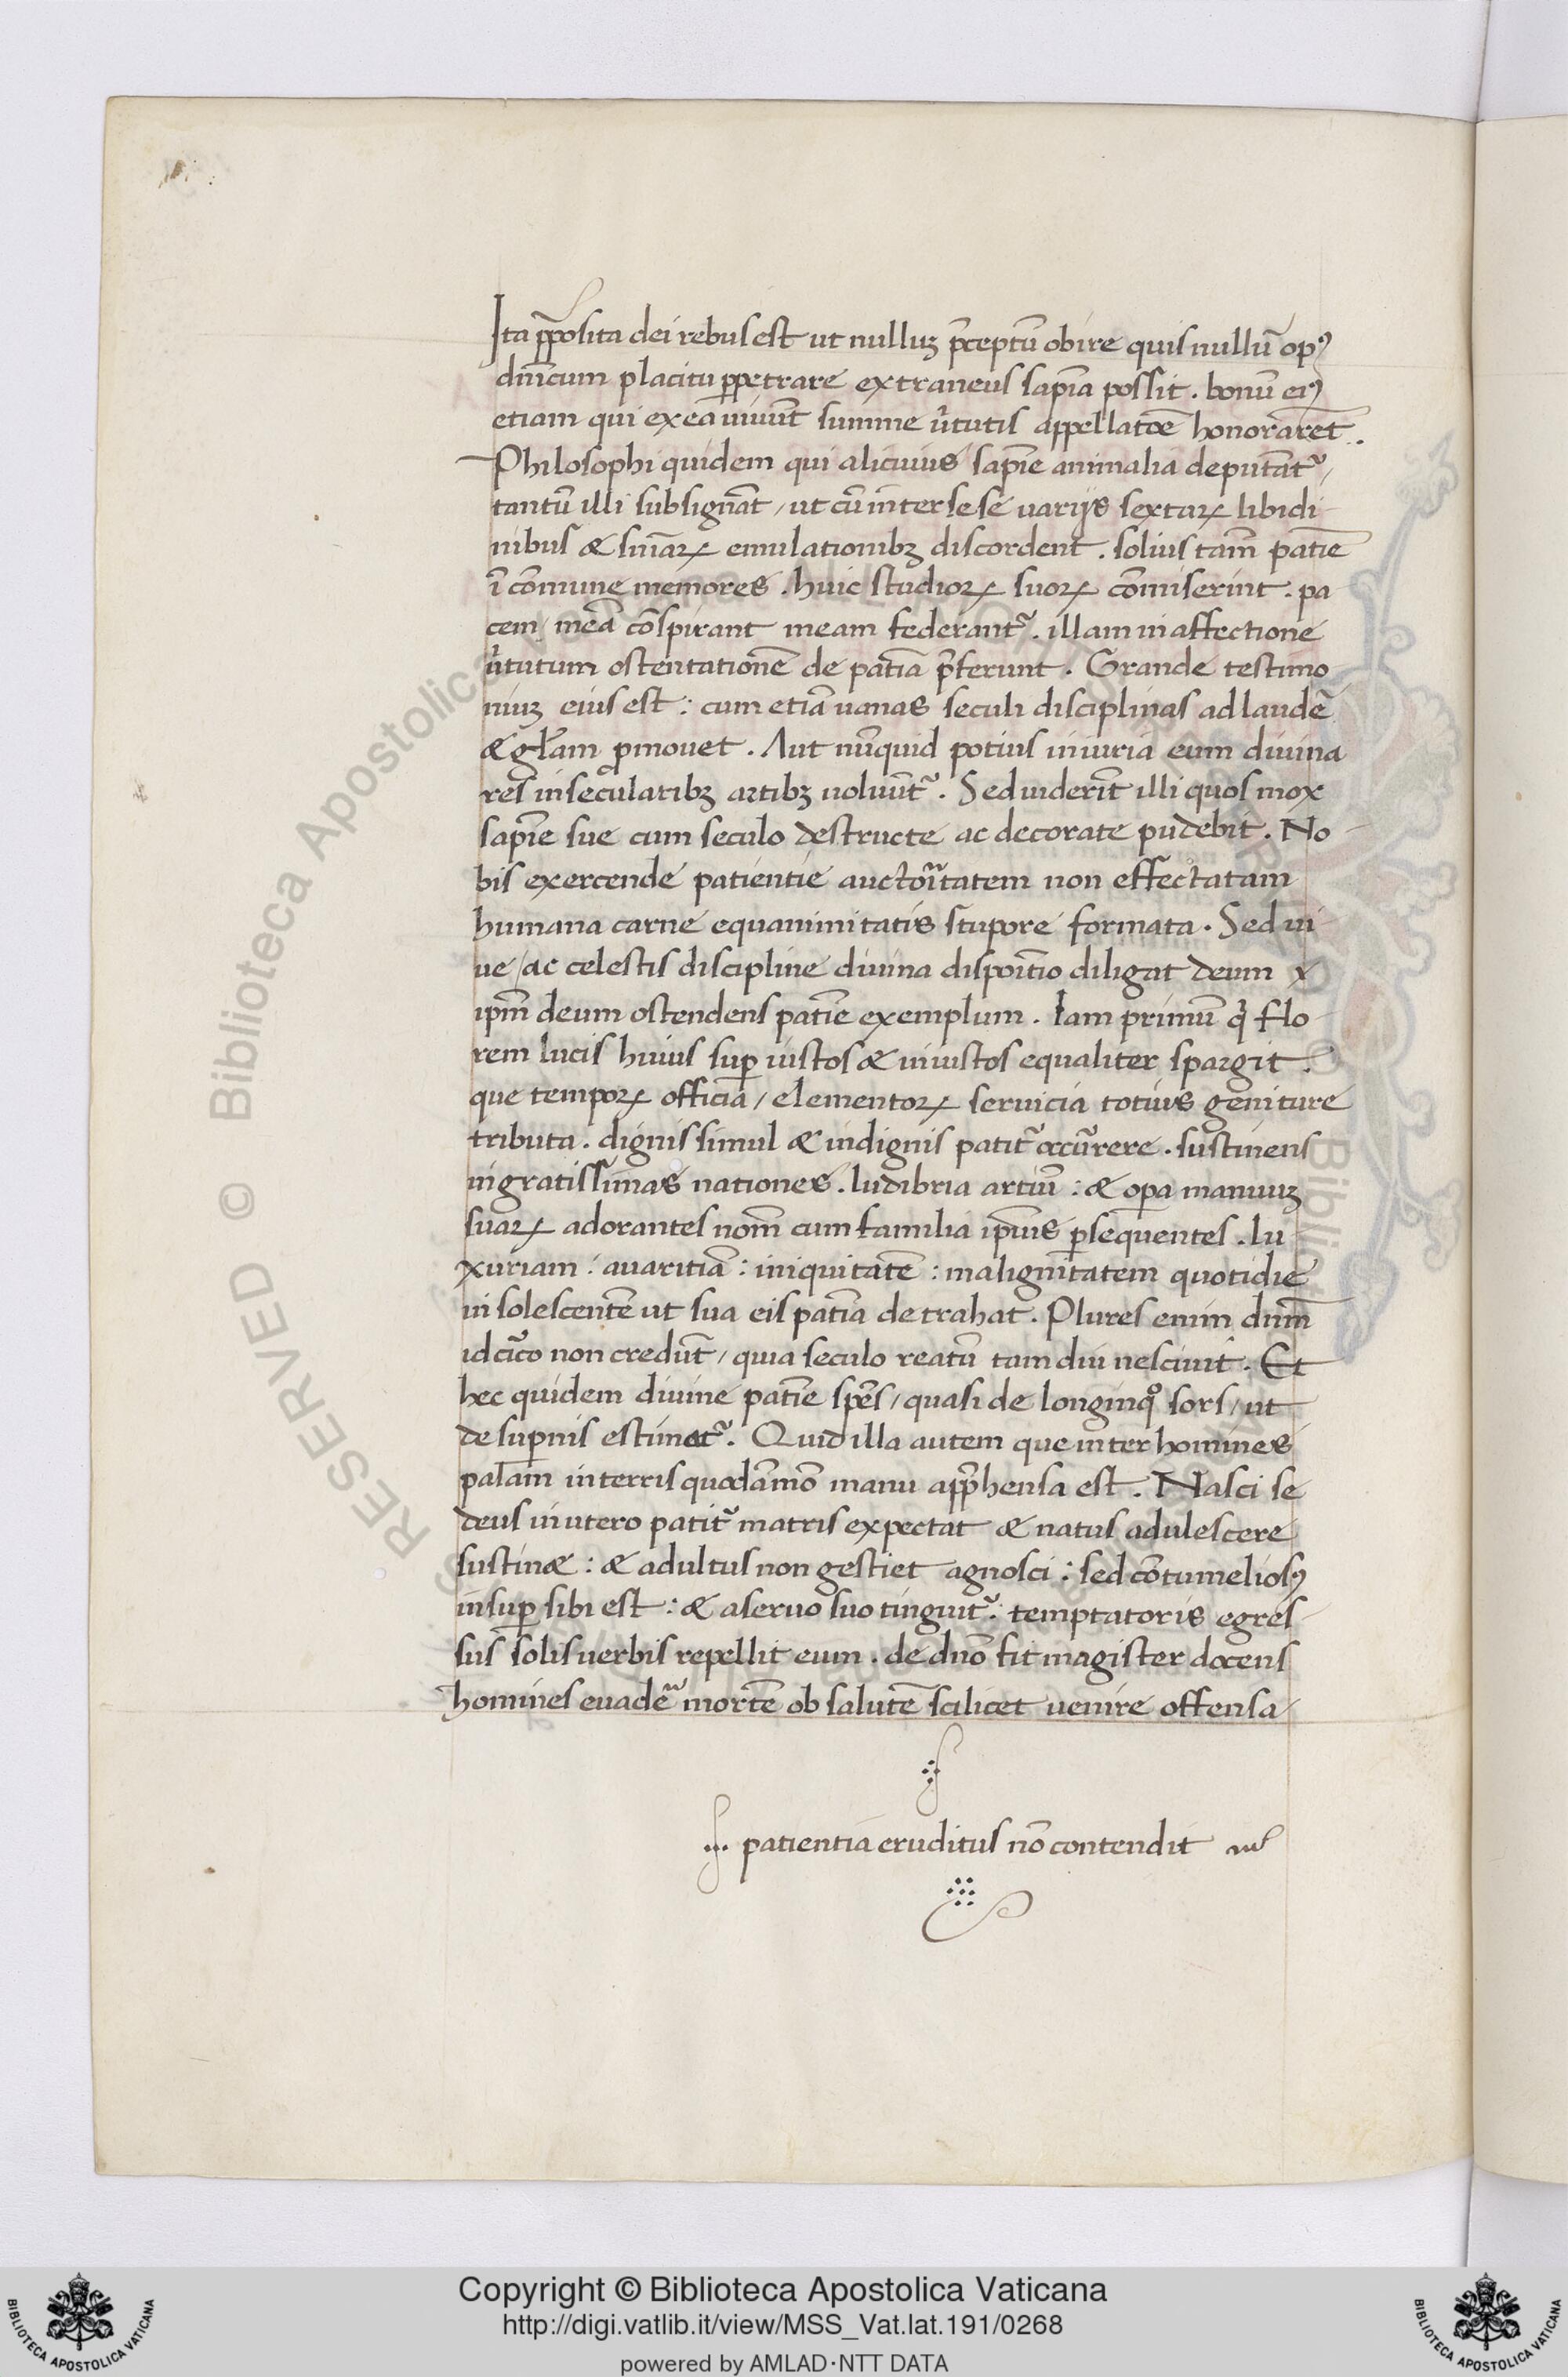 Ita p̄posita dei rebus est ut nulluʒ p̄ceptū obire quis nullū opꝰ
dn̄icum placitu ꝑpetrare extraneus sapīa possit . bonū eiꝰ
etiam qui ex ea uiuūt summe ūtutis appellatōe honorarēt .
Philosophi quidem qui alicuius sapīe animalia deputāt᷑ /
tantū illi subsignāt / ut cū inter se se uarijs sextaꝝ libidi
nibus & sn̄iaꝝ emulationibʒ discordent . solius tam̄ patīe
ī cōmune memores . huic studioꝝ suoꝝ cōmiserint . pa
cem / meā cōspirant meam federant᷑ . illam in affectione
ūtutum ostentationē de patīa p̄ferunt . Grande testimo
niuʒ eius est : cum etiā uanas seculi disciplinas ad laudē
& gl̄am ꝓmouet . Aut nūquid potius iniuria eum diuina
res in secularibʒ artibʒ uoluūt᷑ . Sed uiderīt illi quos mox
sapīe sue cum seculo destructe ac decorate pudebit . No
bis exercende patientie auctor̄itatem non effectatam
humana carne equanimitatis stupore formata . Sed ui
ue / ac celestis discipline diuina dispoītio diligat deum &
ip̄m deum ostendens patīe exemplum . Iam primū q̄ flo
rem lucis huius suꝑ iustos & iniustos equaliter spargit .
que tempoꝝ officia / elementoꝝ seruicia totius geniture
tributa . dignis simul & indignis patit᷑ occūrere . sustinens
ingratissimas nationes . ludibria artiū : & oꝑa manuuʒ
suaꝝ adorantes nom̄ cum familia ip̄ius ꝑsequentes . lu
xuriam : auaritiā : iniquitatē : malignitatem quotidie
in solescentē ut sua eis patīa detrahat . Plures enim dn̄m
idcīrco non credūt / quia seculo reatū tam diu nesciuit . Et
hec quidem diuine patīe spēs / quasi de longinqͦ sors / ut
de suꝑnis estimat᷑ . Quid illa autem que inter homines
palam in terris quodāmō manu app̄hensa est . Nasci se
deus in utero patit᷑ matris expectat & natus adulescere
sustinæ : & adultus non gestiet agnosci : sed cōtumeliosꝰ
insuꝑ sibi est : & a seruo suo tinguit᷑ : temptatoris egres
sus solis uerbis repellit eum . de dn̄o fit magister docens
homines euadē᷑ mortē ob salutē scilicet uenire offensa
patientia eruditus nō contendit
RESERVED © Biblioteca Apostolica
Copyright © Biblioteca Apostolica Vaticana
http://digi.vatlib.it/view/MSS_Vat.lat.191/0268
powered by AMLAD·NTT DATA
BIBLIOTECA APOSTOLICA VATICANA
BIBLIOTECA APOSTOLICA VATICANA